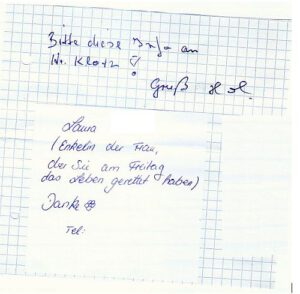 Bitte diese Info an
Hr. Klotz !
Gruß
Laura
(Enkelin der Frau,
der Sie am Freitag
das Leben gerettet haben)
Danke
Tel: